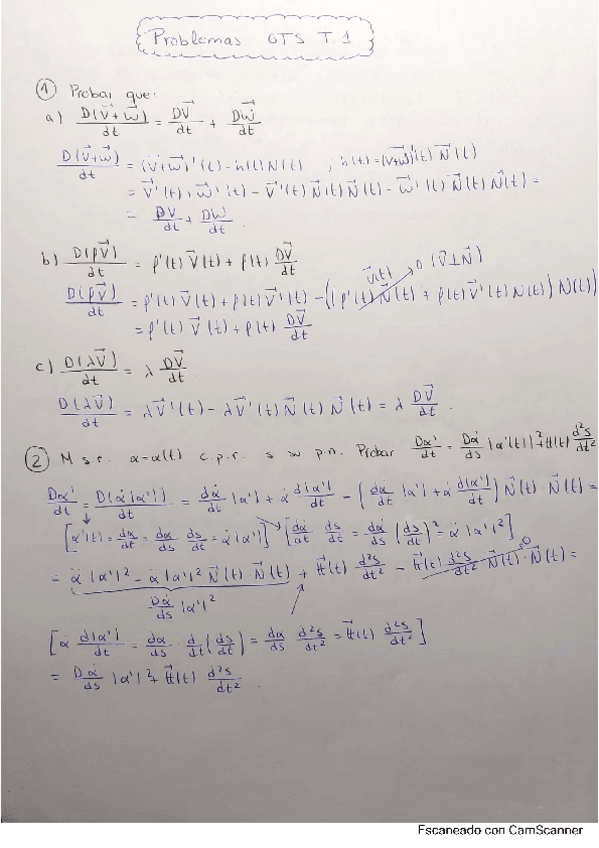 Problemas GTS T.1
① Probar que:
a) D(V⃗+W⃗)/dt = DV⃗/dt + DW⃗/dt
D(V⃗+W⃗)/dt = (V⃗+W⃗)'(t) - h(t)N(t) ; h(t)=(V⃗+W⃗)'(t) N⃗(t)
= V⃗'(t) + W⃗'(t) - V⃗'(t) N⃗(t) N⃗(t) - W⃗'(t) N⃗(t) N⃗(t) =
= DV/dt + DW/dt
b) D(ρV⃗)/dt = ρ'(t) V⃗(t) + ρ(t) DV⃗/dt
V⃗(t) 0 (V⃗⊥N⃗)
D(ρV⃗)/dt = ρ'(t) V⃗(t) + ρ(t) V⃗'(t) - (ρ'(t) N⃗(t) + ρ(t) V⃗'(t) N(t)) N(t)
= ρ'(t) V⃗(t) + ρ(t) DV⃗/dt
c) D(λV⃗)/dt = λ DV⃗/dt
D(λV⃗)/dt = λV⃗'(t) - λV⃗'(t) N⃗(t) N⃗(t) = λ DV⃗/dt.
② M s.r. α=α(t) c.p.r. s p.n. Probar Dα'/dt = Dα̇/ds |α'(t)|² + t⃗(t) d²s/dt²
Dα'/dt = D(α̇|α'|)/dt = dα̇/dt |α'| + α̇ d|α'|/dt - (dα̇/dt |α'| + α̇ d|α'|/dt) N⃗(t)·N⃗(t) =
[α'(t) = dα/dt = dα/ds ds/dt = α̇|α'|] [dα̇/dt ds/dt = dα̇/ds (ds/dt)² = α̈|α'|²]
= α̈|α'|² - α̈|α'|² N⃗(t)·N⃗(t) + t⃗(t) d²s/dt² - t⃗(t) d²s/dt² N⃗(t)·N⃗(t) =
0
Dα̇/ds |α'|²
[α̇ d|α'|/dt = dα/ds · d/dt (ds/dt) = dα/ds d²s/dt² = t⃗(t) d²s/dt²]
= Dα̇/ds |α'|² + t⃗(t) d²s/dt².
Escaneado con CamScanner